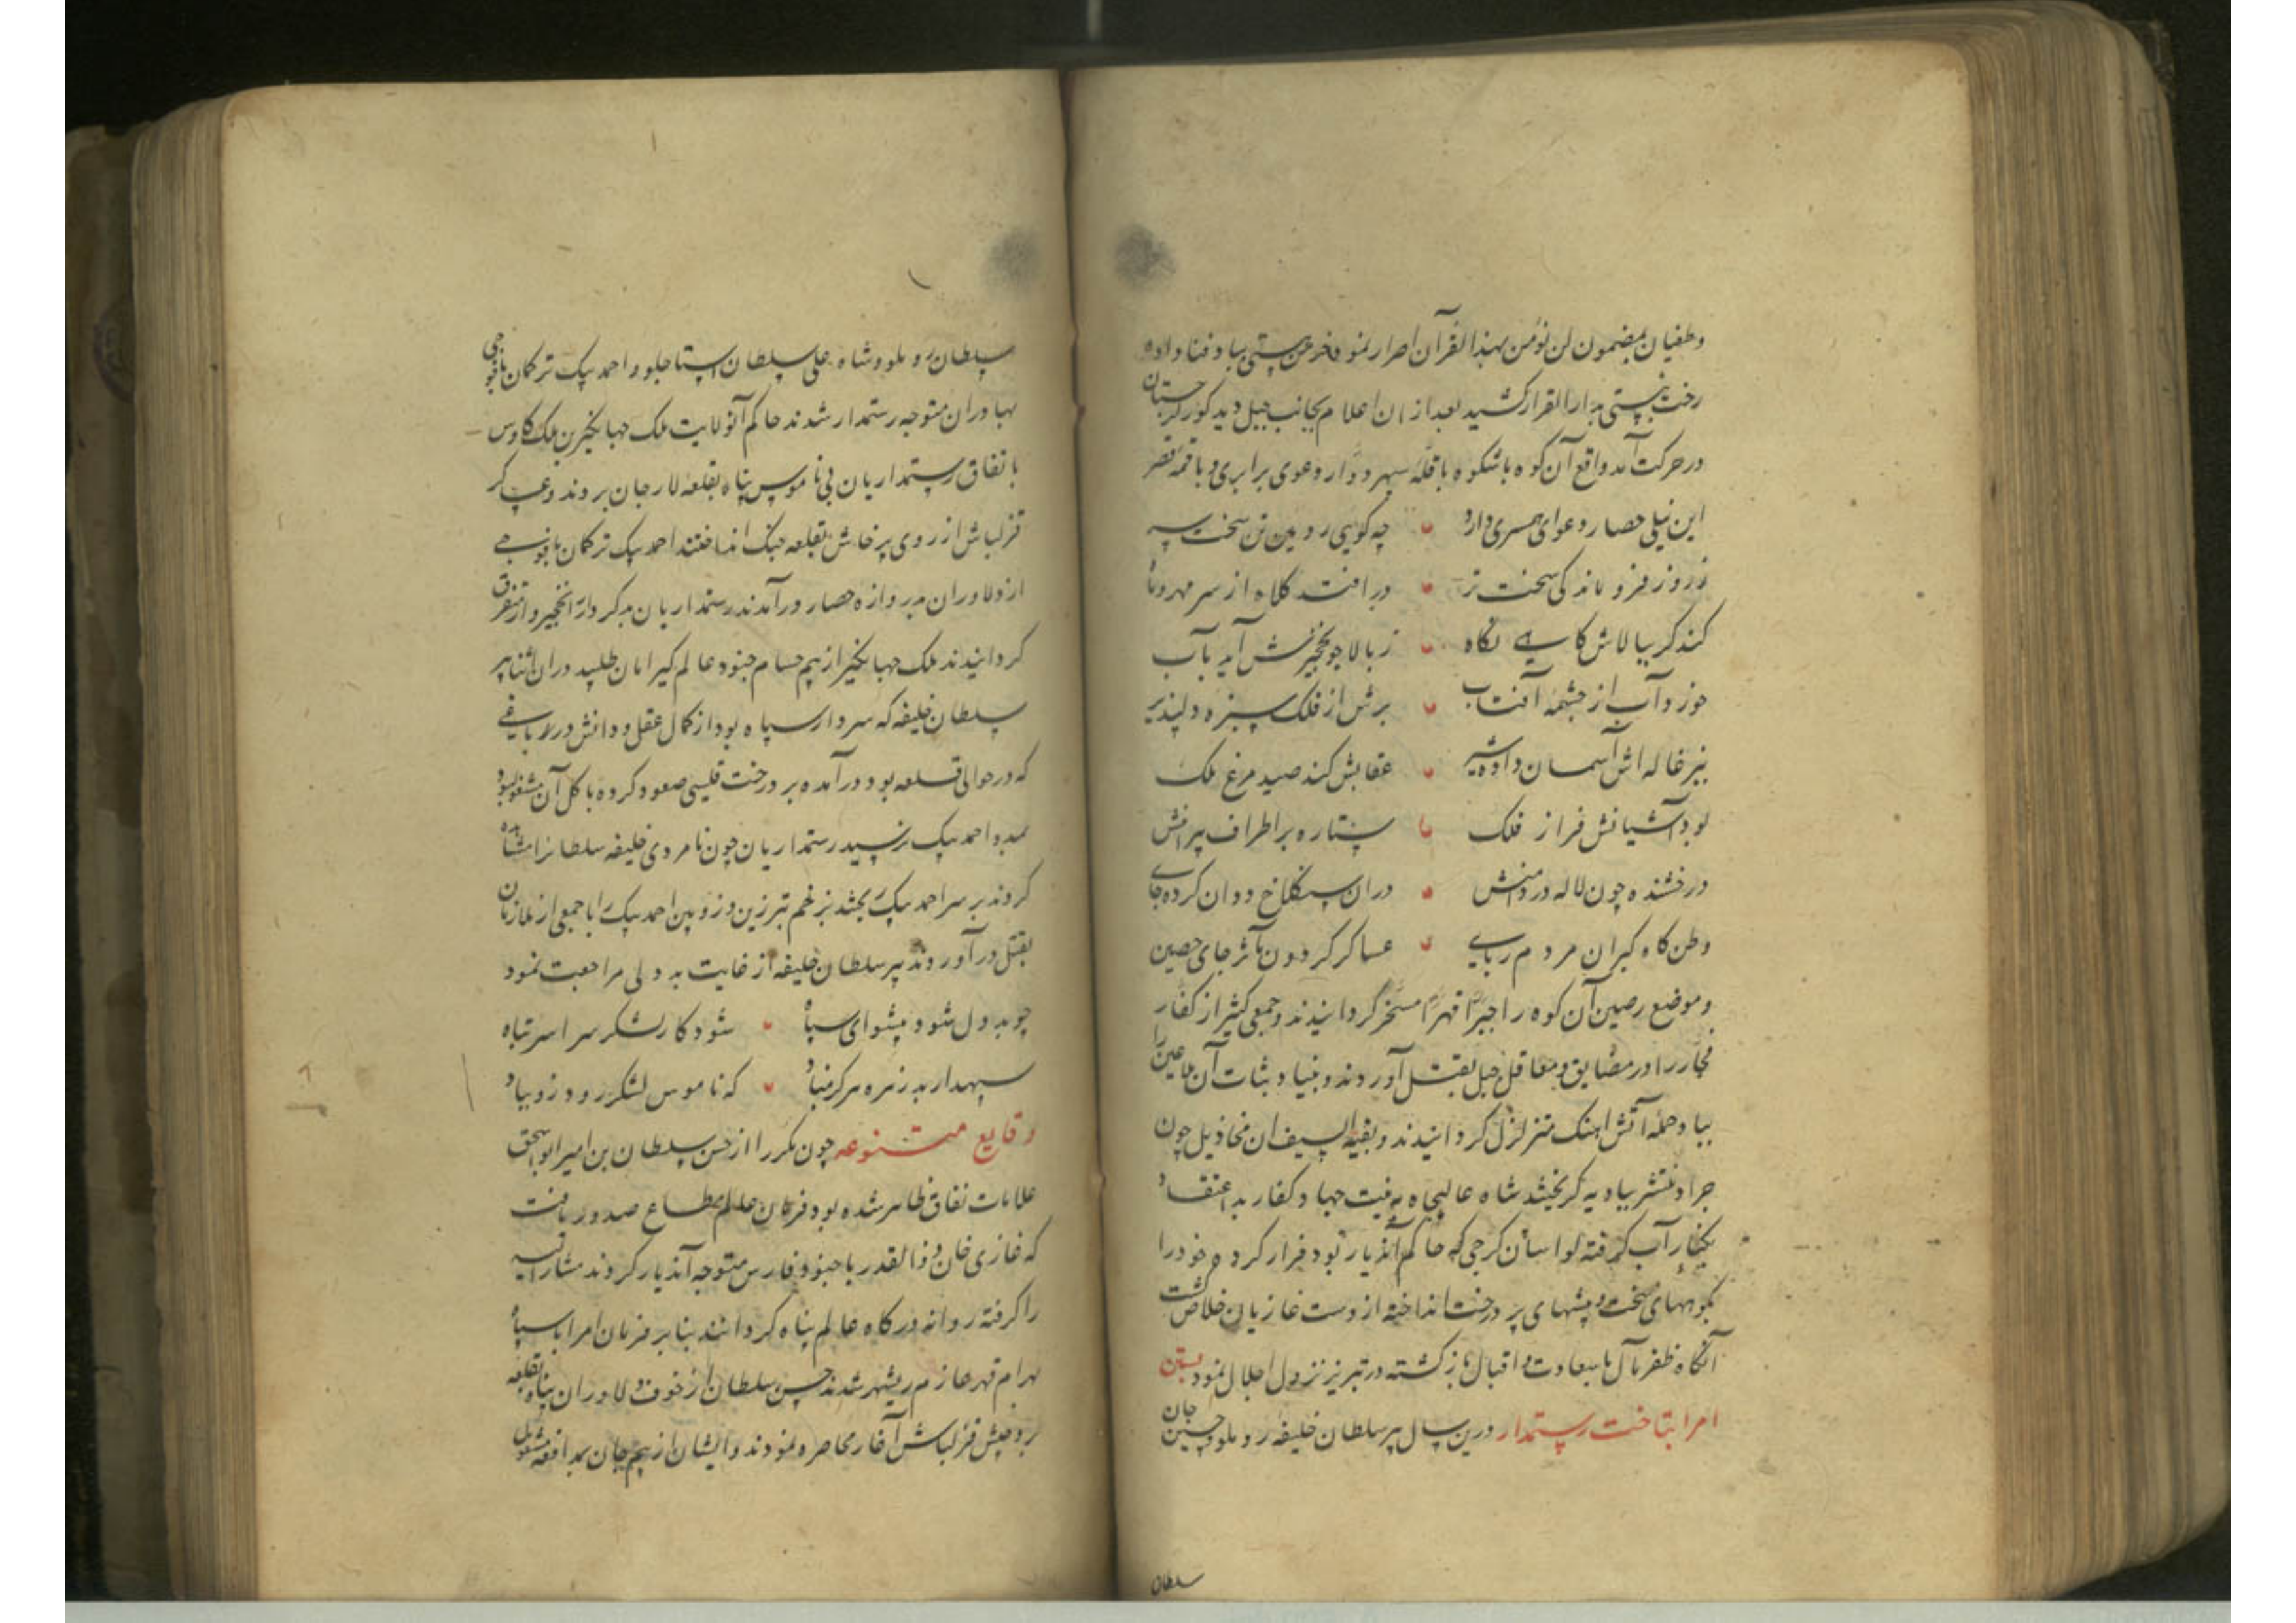 وطغیان بمضمون لن نؤمن بهذا القرآن اصرار نموده خرمن هستی بباد فنا داده
رخت نیستی بدارالقرار کشید بعد از ان اعلام بجانب جبل دید کور گرجستان
در حرکت آمد و واقع آن کوه باشکوه با قلّه سپهر دوّار دعوی برابری و با قمه قصر
این نیلی حصار دعوای همسری دارد چه کوهی رویین تن سخت سر
ز روز فرو ماندکی سخت تر در افتد کلاه از سر مهر و ماه
کند کر ببالاش کاهی نگاه ز بالا جو نخجیرش آید بآب
خورد آب از چشمه آفتاب برش از فلک سبزه دلپذیر
ببزغاله اش آسمان داده شیر عقابش کند صید مرغ ملک
بود آشیانش فراز فلک ستاره بر اطراف پیرامنش
درخشنده چون لاله در دامنش در ان سنگلاخ ددان کرده جای
وطن کاه کبران مردم ربای عساکر کردون مآثر جای حصین
و موضع رصین آن کوه را جبراً قهراً مسخر کردانیدند و جمعی کثیر از کفار
فجار را در مضایق و معاقل جبل بقتل آوردند و بنیاد ثبات آن ملاعین را
بباد حمله آتش آهنک متزلزل کردانیدند و بقیة السیف ان مخاذیل چون
جراد منتشر ببادیه کریختند شاه عالیجاه به نیت جهاد کفار بد اعتقاد
بکنار آب کر رفته لواسان کرجی که حاکم آندیار بود فرار کرده خود را
بکوههای سخت و بیشهای پر درخت انداخته از دست غازیان خلاص گشت
آنگاه ظفر مآل با سعادت و اقبال باز کشته در تبریز نزول اجلال نمود
امرا بتاخت رستمدار درین سال پیر سلطان خلیفه روملو و حسین جان
سلطان
سلطان روملو و شاه علی سلطان استاجلو و احمد بیک ترکمان با فوجی
بهادران متوجه رستمدار شدند حاکم آنولایت ملک جهانکیر بن ملک کاوس
باتفاق رستمداریان بی ناموس پناه بقلعه لارجان بردند و عسکر
قزلباش از روی پرخاش بقلعه جنک انداختند احمد بیک ترکمان با فوجی
از دلاوران بدروازه حصار درآمدند رستمداریان بدکردار را از متفرق
کردانیدند ملک جهانکیر از بیم حسام جنود عالم کیر امان طلبید در ان اثنا پیر
سلطان خلیفه که سردار سپاه بود از کمال عقل و دانش در باغی
که در حوالی قلعه بود درآمده بر درخت کیلاس صعود کرده باکل آن مشغول بود
بمدد احمد بیک نرسید رستمداریان چون نامردی خلیفه سلطانرا مشاهده
کردند بر سر احمد بیک ریختند بزخم تبرزین و زوبین احمد بیک را با جمعی از ملازمان
بقتل درآوردند پیر سلطان خلیفه از غایت بد دلی مراجعت نمود
چو بددل شود پیشوای سپاه شود کار لشکر سراسر تباه
سپهدار بد زهره هرکز مباد که ناموس لشکر رود زو بباد
وقایع متنوعه چون مکررا از حسن سلطان بن امیر ابو اسحق
علامات نفاق ظاهر شده بود فرمان عالم مطاع صدور یافت
که غازی خان ذوالقدر با جنود فارس متوجه آندیار کردند مشار الیه
را کرفته روانه درکاه عالم پناه کردانند بنا بر فرمان امرا با سپاه
بهرام قهر عازم ریشهر شدند حسن سلطان از خوف دلاوران پناه بقلعه
برد جیش قزلباش آغاز محاصره نمودند و ایشان از بیم جان بمدافعه مشغول